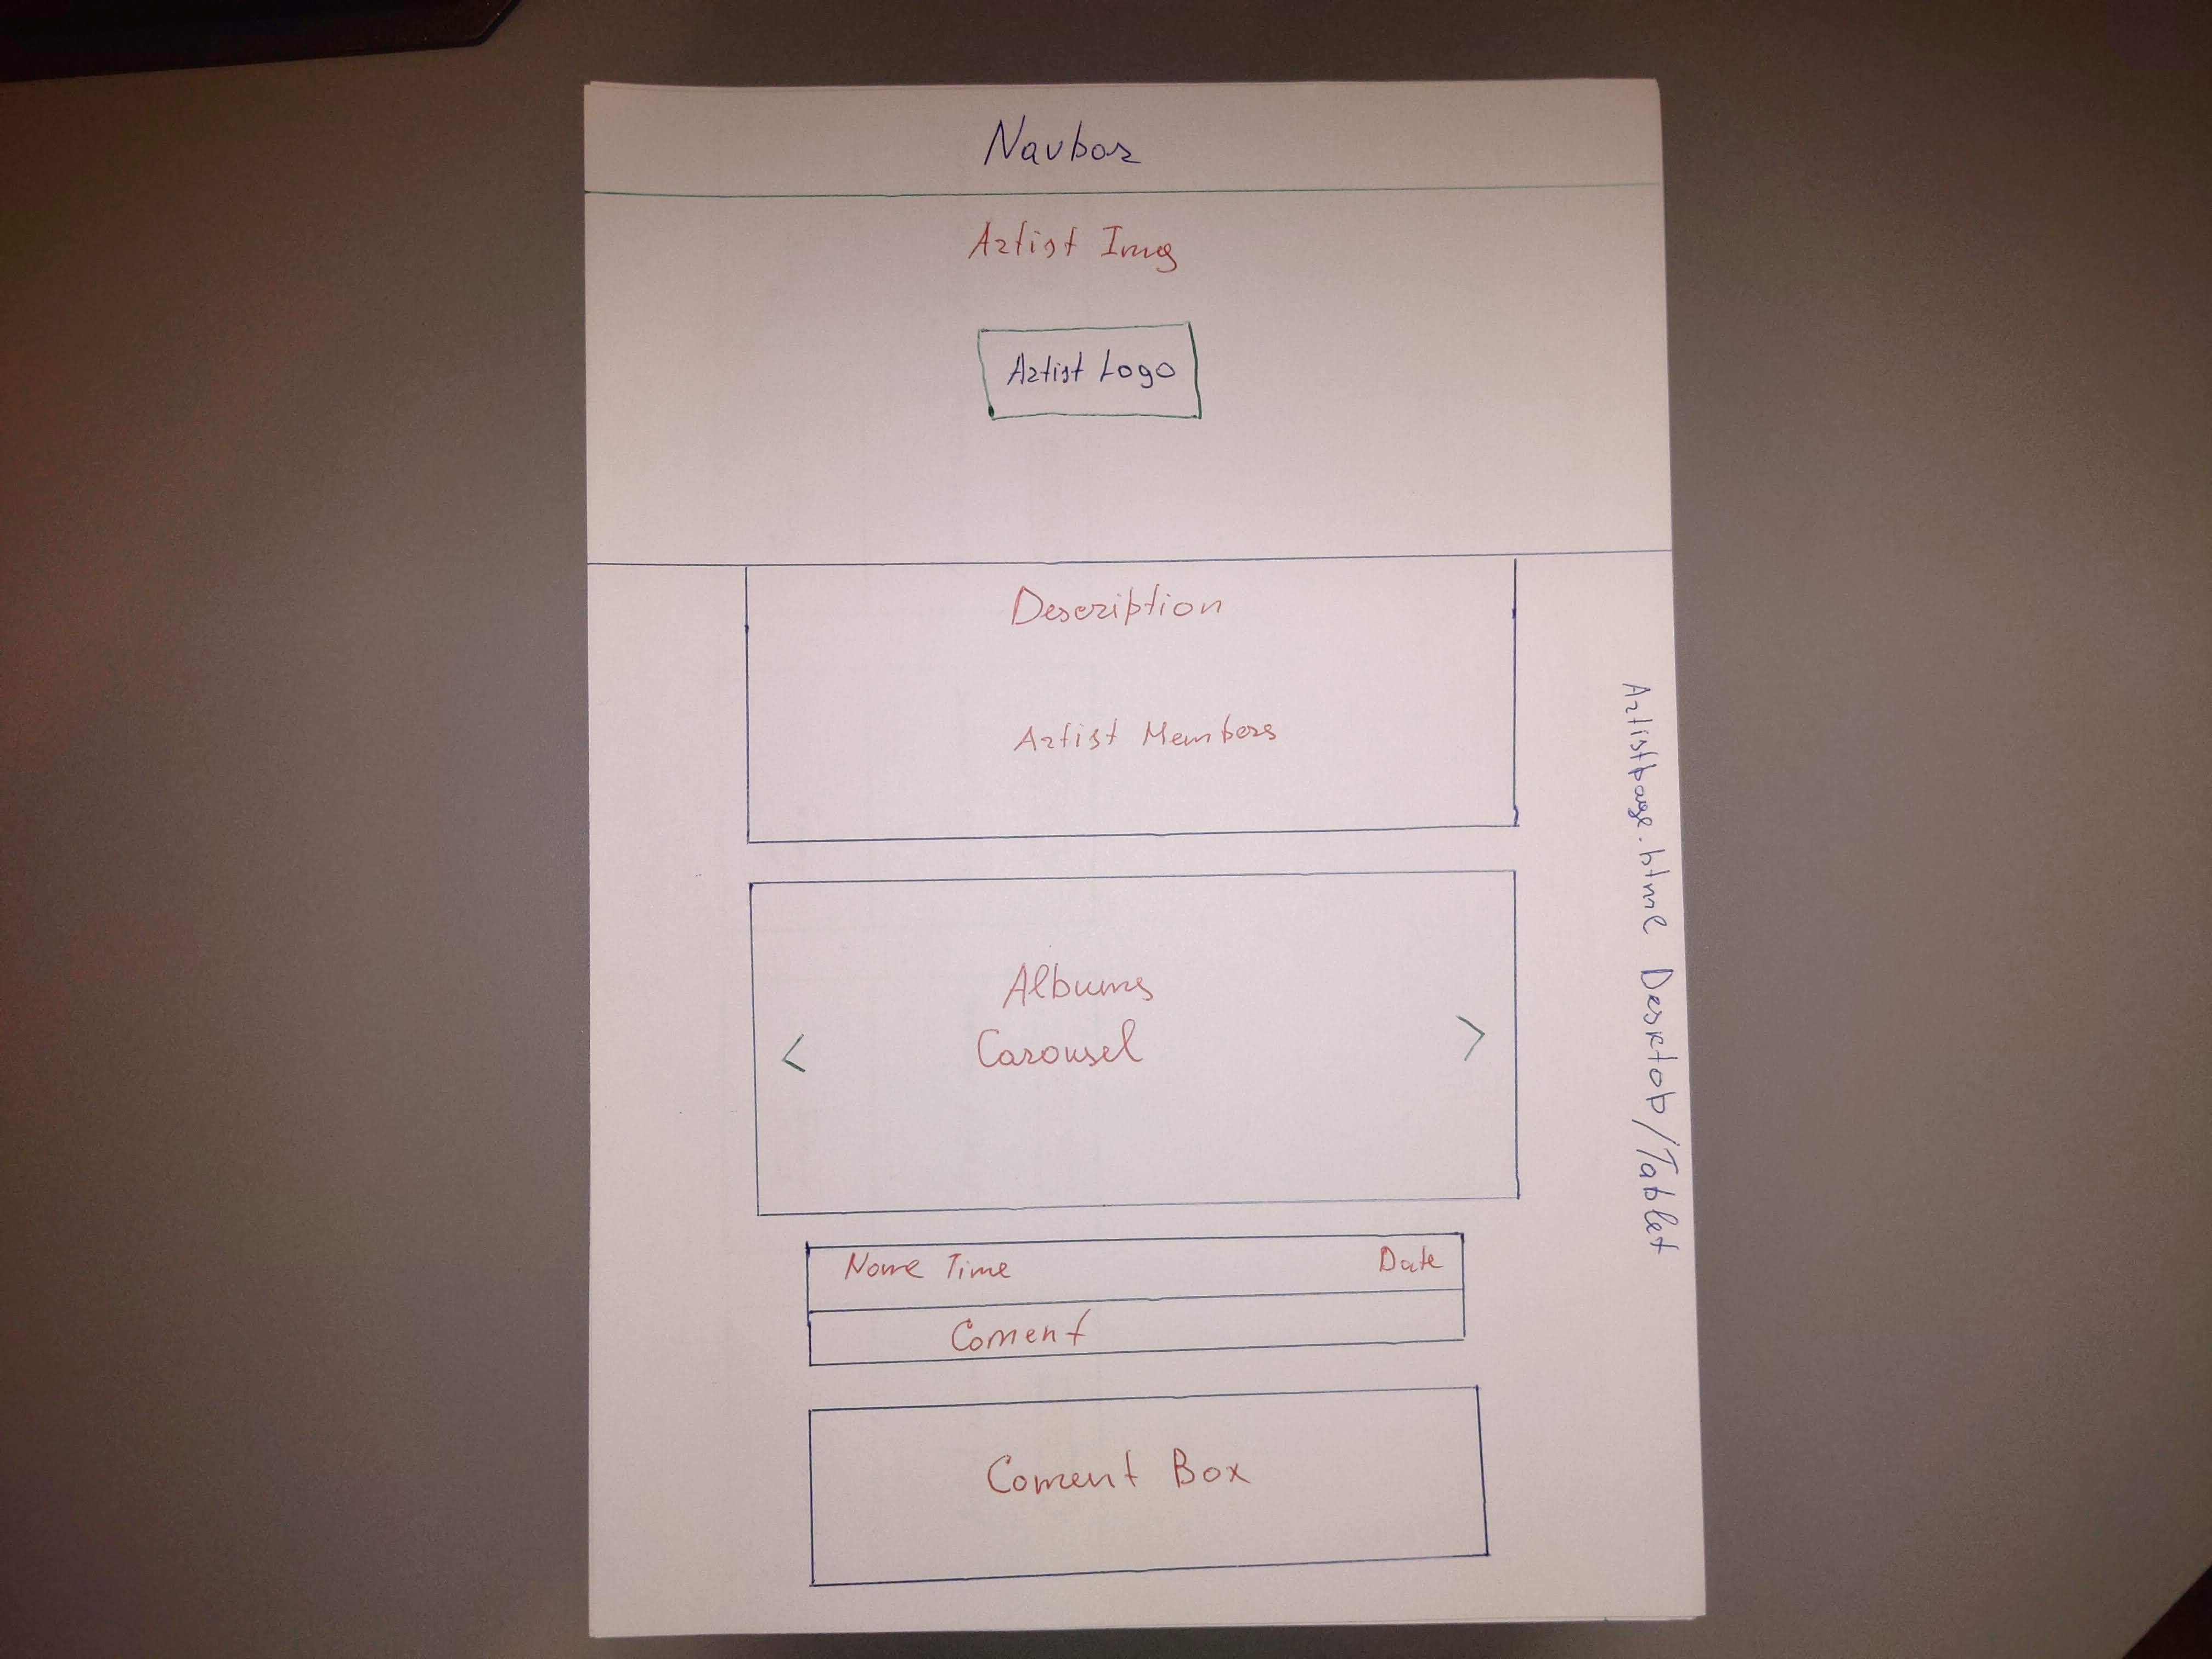 Navbar
Artist Img
Artist Logo
Description
Artist Members
Albums
Carousel
< >
Name Time Date
Coment
Coment Box
Artistpage.html Desktop/Tablet